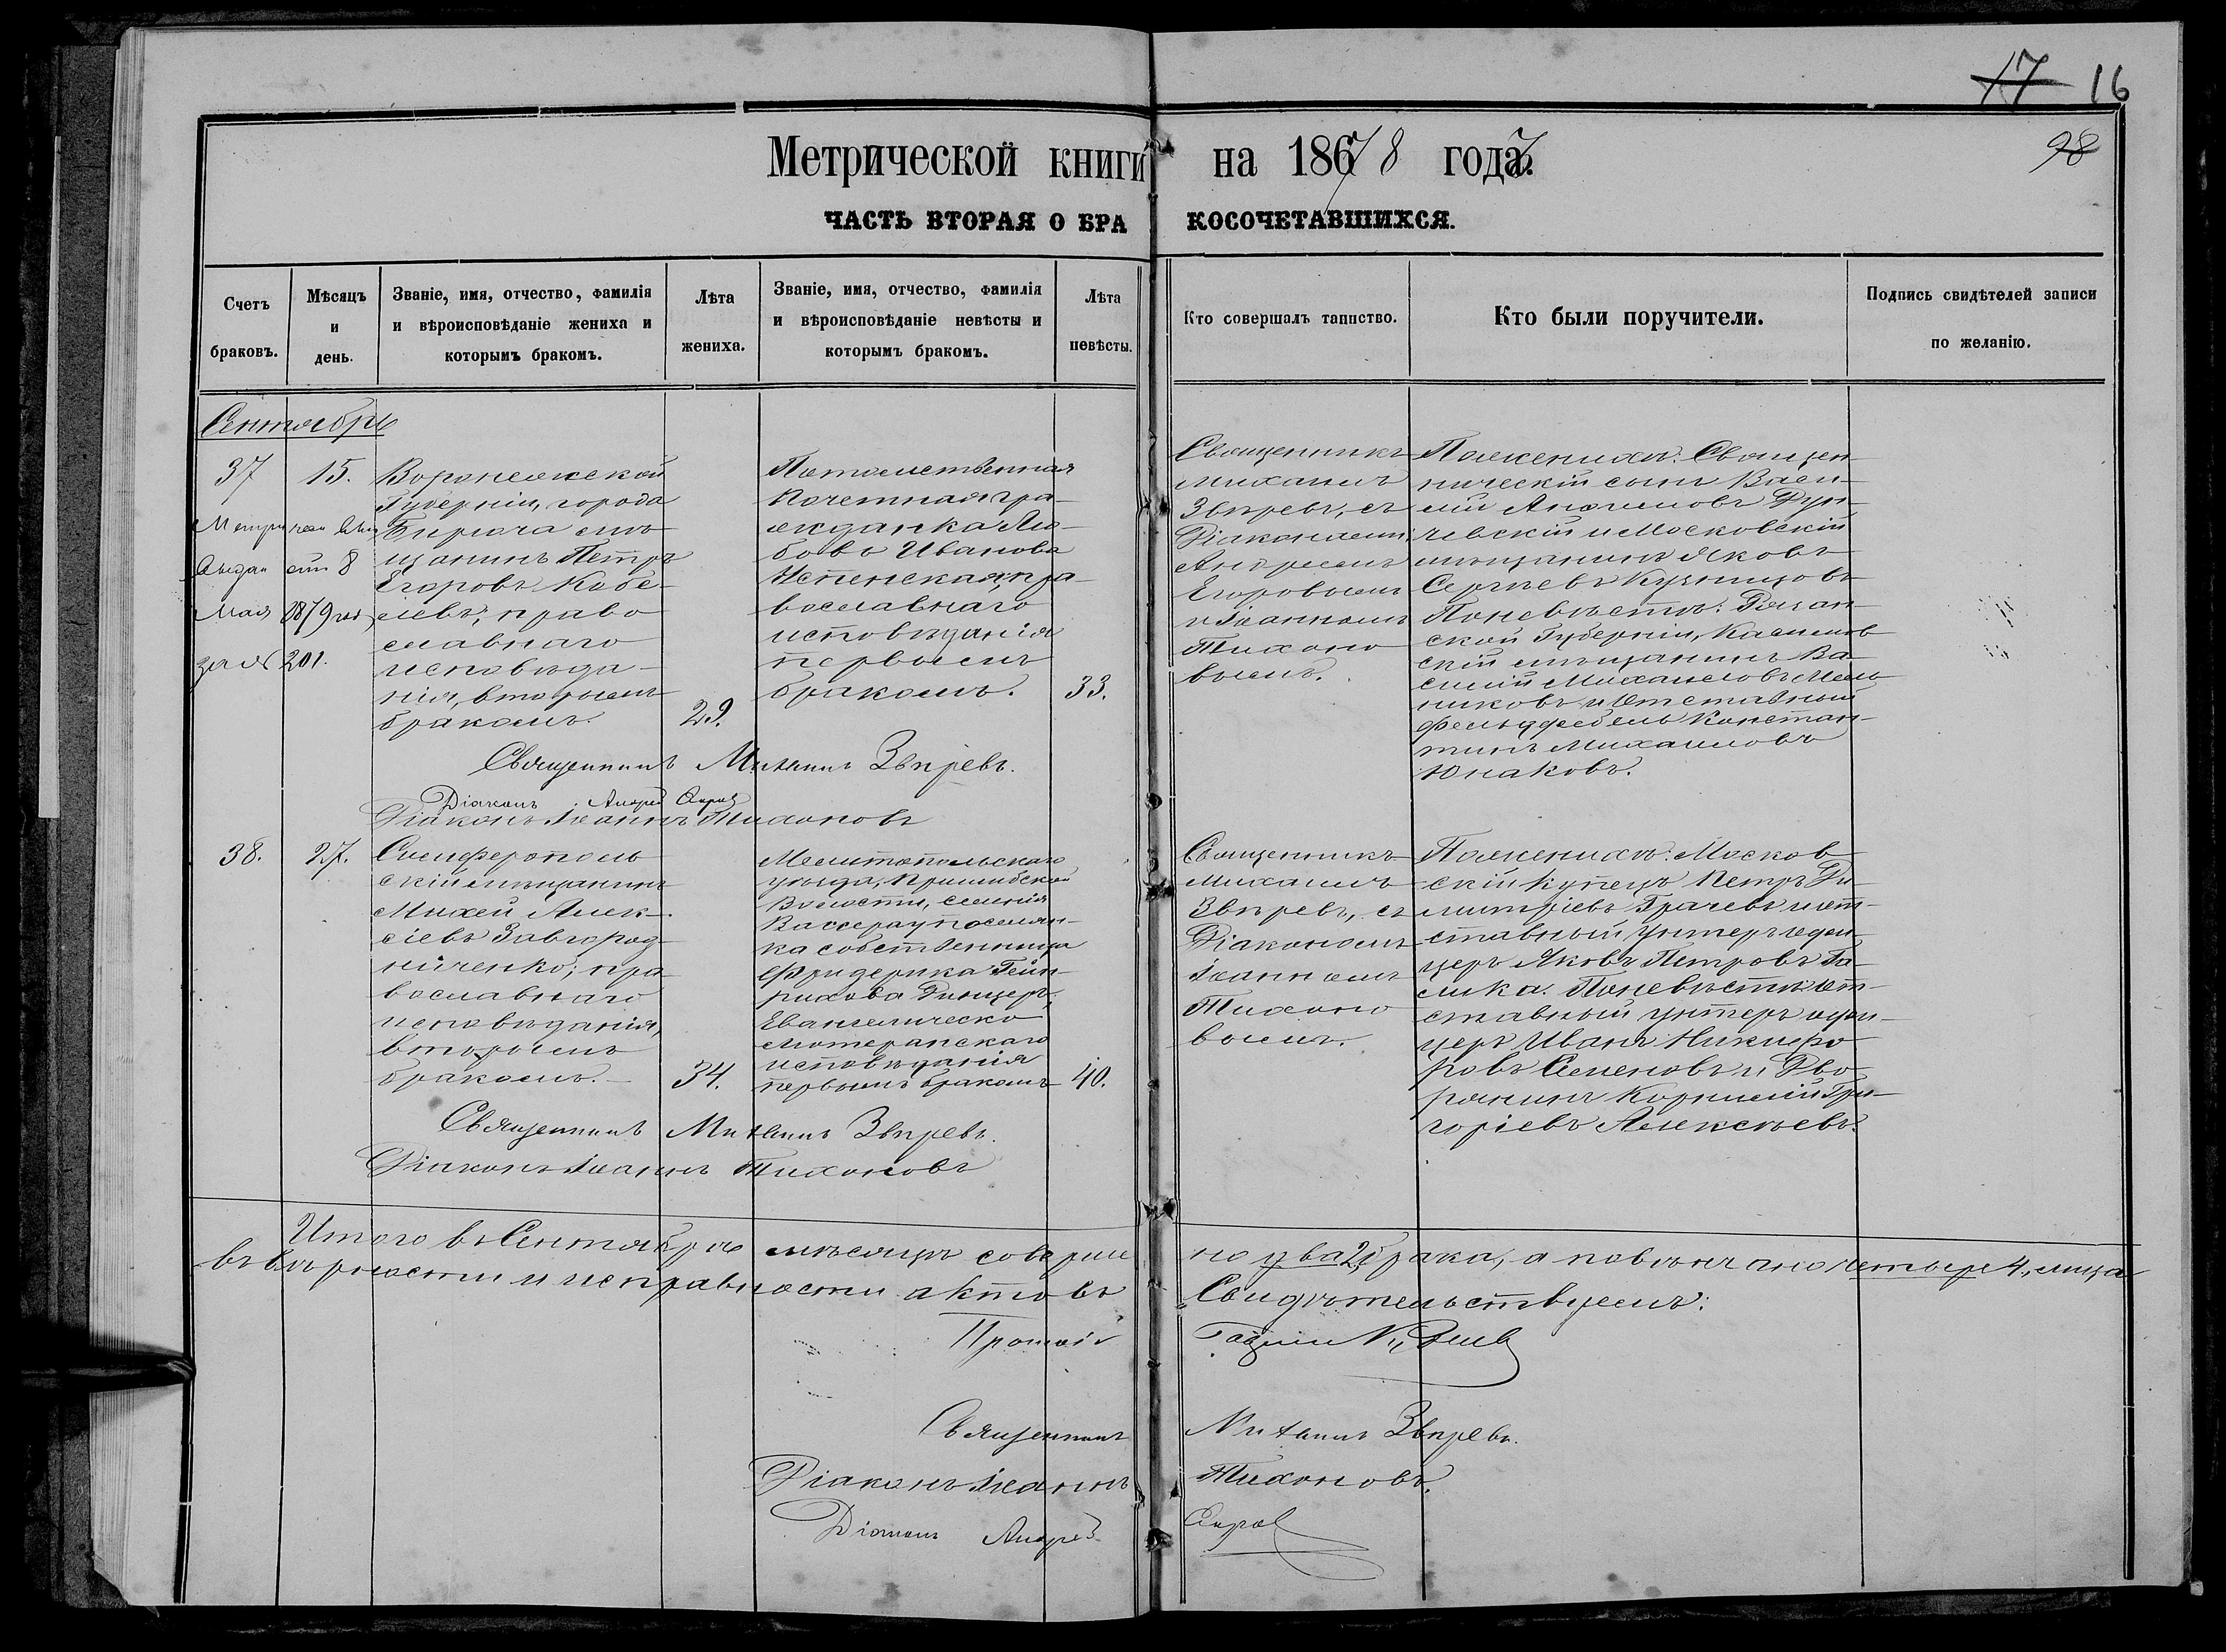 17 16
98
Метрической книги на 18678 года.
ЧАСТЬ ВТОРАЯ О БРАКОСОЧЕТАВШИХСЯ.
Счетъ браковъ.
Мѣсяцъ и день.
Званіе, имя, отчество, фамилія и вѣроисповѣданіе жениха и которымъ бракомъ.
Лѣта жениха.
Званіе, имя, отчество, фамилія и вѣроисповѣданіе невѣсты и которымъ бракомъ.
Лѣта невѣсты.
Кто совершалъ таинство.
Кто были поручители.
Подпись свидѣтелей записи по желанію.
Сентябрь
37
15.
Выдан
8
Мая 1879
за № 201.
Воронежской
Губерніи, города
Бирюча мѣ-
щанинъ Петръ
Егоровъ Кобе-
левъ, право
славнаго
исповѣда-
нія, вторымъ
бракомъ.
29.
Потомственная
почетная гра-
жданка Лю-
бовь Иванова
Успенская, пра-
вославнаго
исповѣданія
первымъ
бракомъ.
33.
Священникъ
Михаилъ
Звѣревъ, съ
Діаконами
Андреемъ
Егоровымъ
и Іоанномъ
Тихоно
вымъ.
По женихѣ: Священ
ническій сынъ Васи-
лій
чевскій и Московскій
мѣщанинъ Яковъ
Сергѣевъ Кузнецовъ
По невѣстѣ: Рязан-
ской Губерніи, Касимов
скій мѣщанинъ Ва-
силій Михаиловъ Мель
никовъ и Отставный
фельдфебель Констан-
тинъ Михаиловъ
Юнаковъ.
Священникъ Михаилъ Звѣревъ.
Діаконъ Андрей
Діаконъ Іоаннъ Тихоновъ
38.
27.
Симферополь
скій мѣщанинъ
Михей Алек-
сіевъ Завгород-
ниченко, пра
вославнаго
исповѣданія,
вторымъ
бракомъ.
34.
Мелитопольскаго
уѣзда, Пришибской
Волости, селенія
Вассерау поселян-
ка собственница
Фридерика Гейн-
рихова
Евангелическо
лютеранскаго
исповѣданія
первымъ бракомъ
40.
Священникъ
Михаилъ
Звѣревъ, съ
Діакономъ
Іоанномъ
Тихоно
вымъ.
По женихѣ: Москов
скій купецъ Петръ Ди-
митріевъ Грачевъ и от-
ставный Унтеръ офи-
церъ Яковъ Петровъ Га-
лика. По невѣстѣ: От-
ставный унтеръ офи-
церъ Иванъ Никифо
ровъ Семеновъ и Дво
рянинъ Корнилій Гри-
горіевъ Алексѣевъ.
Священникъ Михаилъ Звѣревъ.
Діаконъ Іоаннъ Тихоновъ
Итого въ Сентябрѣ мѣсяцѣ соверше но два 2, брака, а повѣнчано четыре 4, лица
въ вѣрности и исправности актовъ Свидѣтельствуемъ:
Священникъ Михаилъ Звѣревъ.
Діаконъ Іоаннъ Тихоновъ.
Діаконъ Андрей